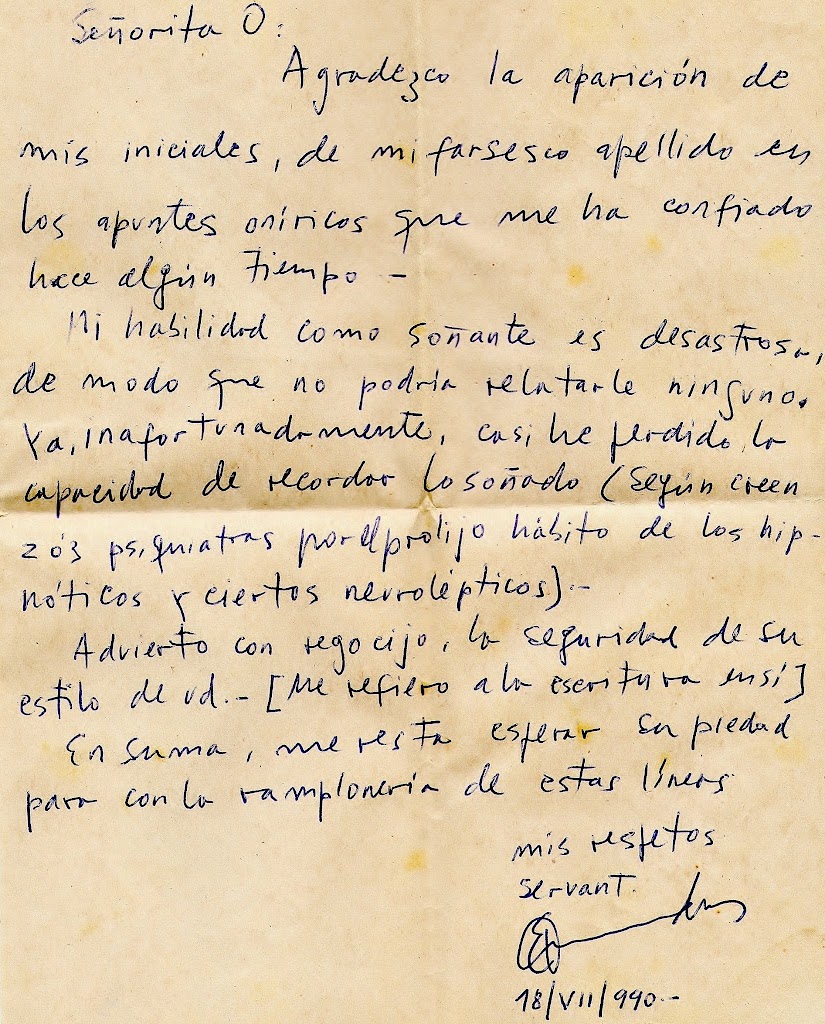 Señorita O:
Agradezco la aparición de
mis iniciales, de mi farsesco apellido en
los apuntes oníricos que me ha confiado
hace algún tiempo -
Mi habilidad como soñante es desastrosa,
de modo que no podría relatarle ninguno.
Ya, inafortunadamente, casi he perdido la
capacidad de recordar lo soñado (según creen
2 ó 3 psiquiatras por el prolijo hábito de los hip-
nóticos y ciertos neurolépticos).-
Advierto con regocijo, la seguridad de su
estilo de ud.- [Me refiero a la escritura en sí]
En suma, me resta esperar su piedad
para con la ramplonería de estas líneas
mis respetos
servant.
18/VII/990.-